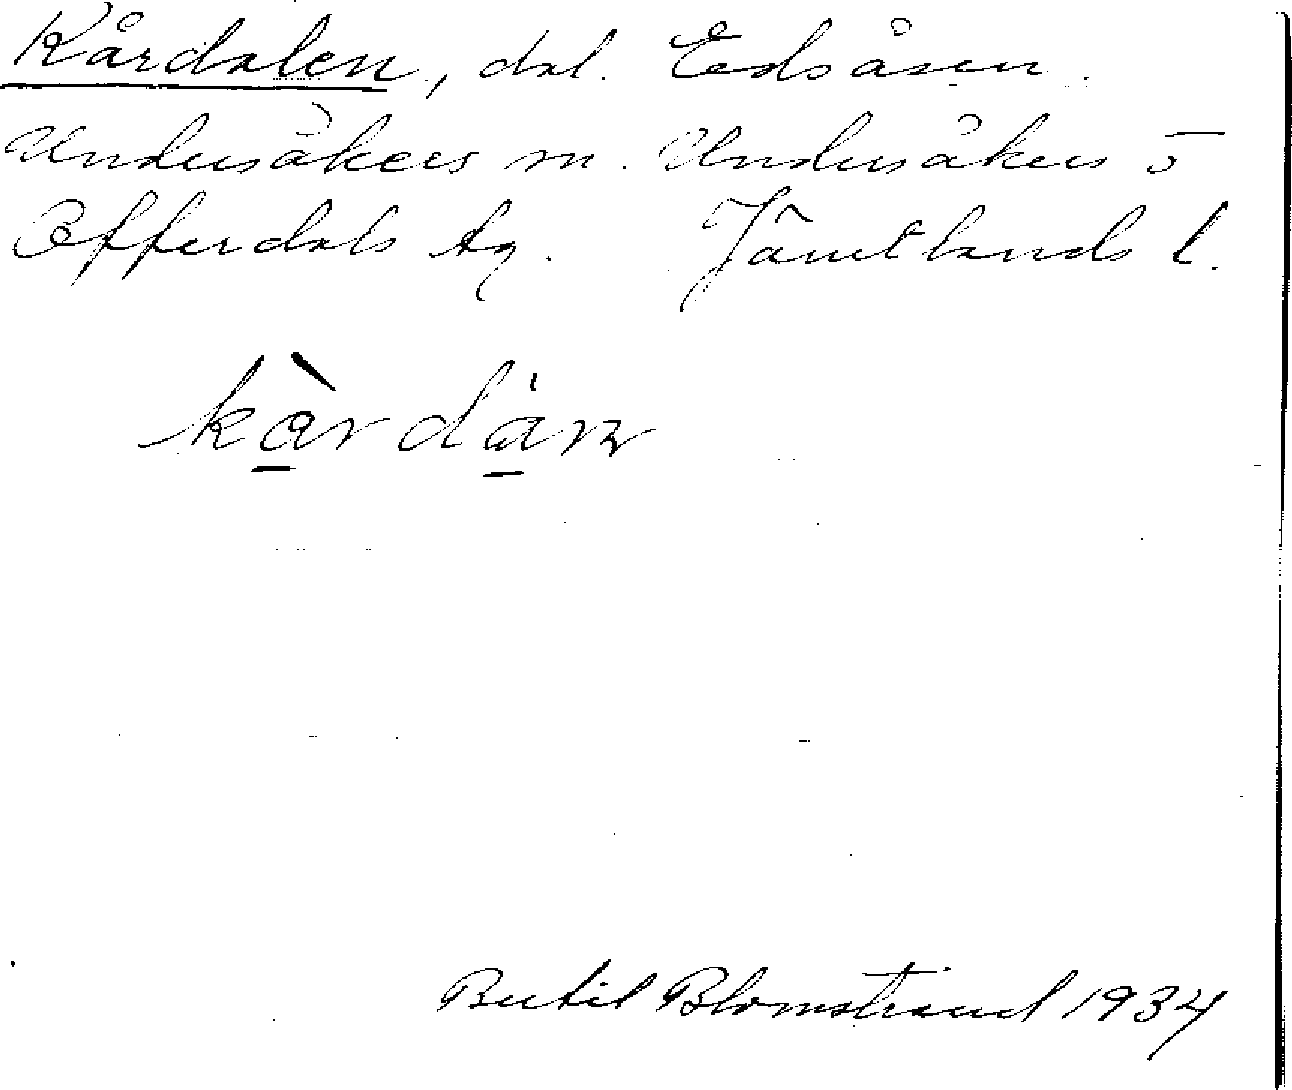 Kårdalen, dal. Edsåsen.
Undersåkers sn. Undersåkers o
Offerdals tg. Jämtlands l.
Bertil Blomstrand 1934